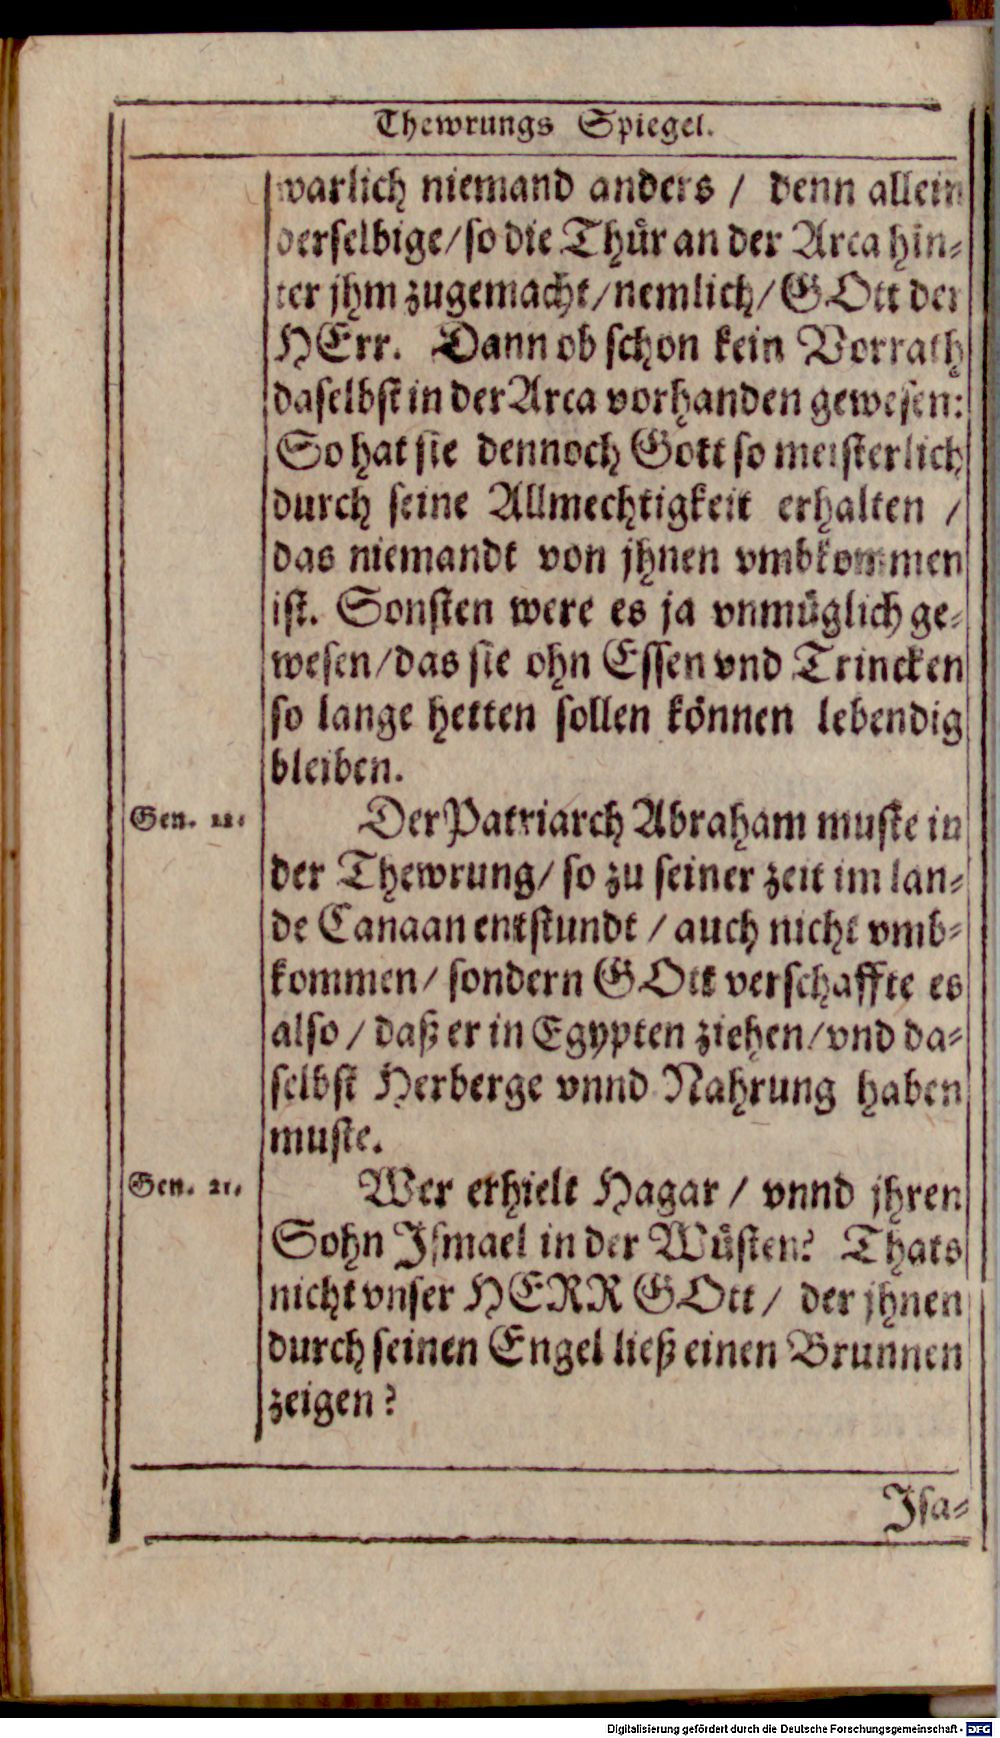 Thewrungs Spiegel.
warlich niemand anders / denn allein
derselbige/so die Thür an der Arca hin-
ter jhm zugemacht/nemlich/GOtt der
HErr. Dann ob schon kein Vorrath
daselbst in der Arca vorhanden gewesen:
So hat sie dennoch Gott so meisterlich
durch seine Allmechtigkeit erhalten /
das niemandt von jhnen vmbkommen
ist. Sonsten were es ja vnmüglich ge-
wesen/das sie ohn Essen vnd Trincken
so lange hetten sollen können lebendig
bleiben.
Gen. 12.
Der Patriarch Abraham muste in
der Thewrung/ so zu seiner zeit im lan-
de Canaan entstundt / auch nicht vmb-
kommen/ sondern GOtt verschaffte es
also / daß er in Egypten ziehen/vnd da-
selbst Herberge vnnd Nahrung haben
muste.
Gen. 21.
Wer erhielt Hagar / vnnd jhren
Sohn Ismael in der Wüsten? Thats
nicht vnser HERR GOtt / der jhnen
durch seinen Engel ließ einen Brunnen
zeigen?
Isa-
Digitalisierung gefördert durch die Deutsche Forschungsgemeinschaft - DFG